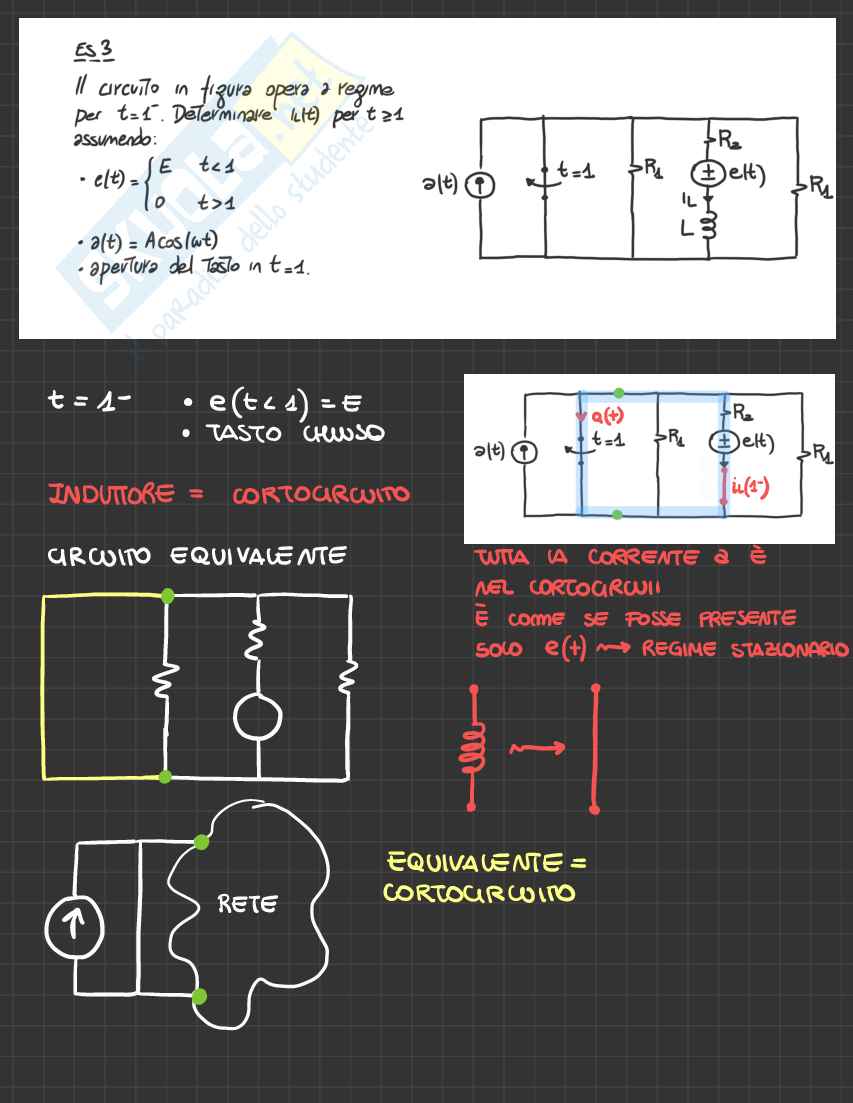 ES 3
Il circuito in figura opera a regime
per t=1⁻. Determinare iL(t) per t≥1
assumendo:
• e(t) = { E t<1
0 t>1
• a(t) = A cos(ωt)
• apertura del tasto in t=1.
a(t)
t=1
R1
R2
e(t)
iL
L
R1
SKUOLA.net
il paradiso dello studente
t = 1⁻ • e(t<1) = E
• TASTO CHIUSO
INDUTTORE = CORTOCIRCUITO
CIRCUITO EQUIVALENTE
a(t)
a(t)
t=1
R1
R2
e(t)
iL(1⁻)
R1
TUTTA LA CORRENTE a È
NEL CORTOCIRCUII
È COME SE FOSSE PRESENTE
SOLO e(t) ⇝ REGIME STAZIONARIO
EQUIVALENTE =
CORTOCIRCUITO
RETE